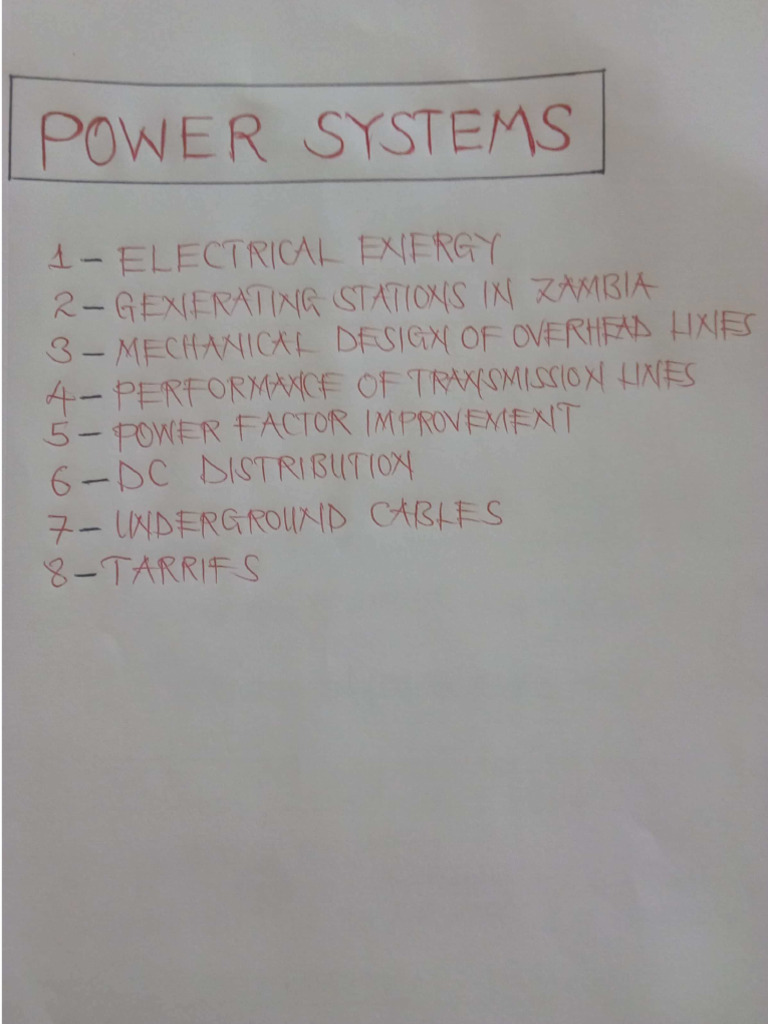 POWER SYSTEMS
1 - ELECTRICAL ENERGY
2 - GENERATING STATIONS IN ZAMBIA
3 - MECHANICAL DESIGN OF OVERHEAD LINES
4 - PERFORMANCE OF TRANSMISSION LINES
5 - POWER FACTOR IMPROVEMENT
6 - DC DISTRIBUTION
7 - UNDERGROUND CABLES
8 - TARRIFS